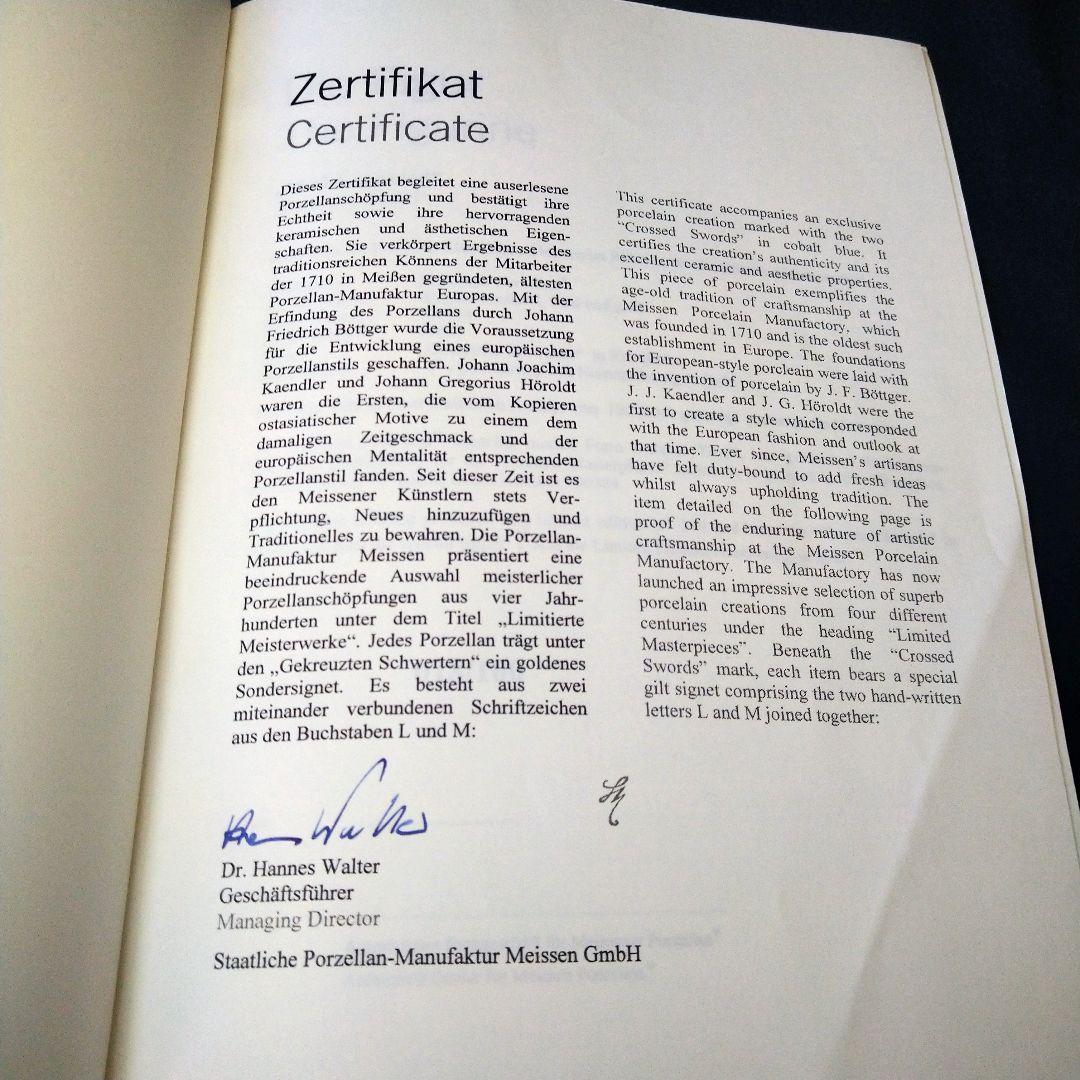 Zertifikat
Certificate
Dieses Zertifikat begleitet eine auserlesene
Porzellanschöpfung und bestätigt ihre
Echtheit sowie ihre hervorragenden
keramischen und ästhetischen Eigen-
schaften. Sie verkörpert Ergebnisse des
traditionsreichen Könnens der Mitarbeiter
der 1710 in Meißen gegründeten, ältesten
Porzellan-Manufaktur Europas. Mit der
Erfindung des Porzellans durch Johann
Friedrich Böttger wurde die Voraussetzung
für die Entwicklung eines europäischen
Porzellanstils geschaffen. Johann Joachim
Kaendler und Johann Gregorius Höroldt
waren die Ersten, die vom Kopieren
ostasiatischer Motive zu einem dem
damaligen Zeitgeschmack und der
europäischen Mentalität entsprechenden
Porzellanstil fanden. Seit dieser Zeit ist es
den Meissener Künstlern stets Ver-
pflichtung, Neues hinzuzufügen und
Traditionelles zu bewahren. Die Porzellan-
Manufaktur Meissen präsentiert eine
beeindruckende Auswahl meisterlicher
Porzellanschöpfungen aus vier Jahr-
hunderten unter dem Titel „Limitierte
Meisterwerke“. Jedes Porzellan trägt unter
den „Gekreuzten Schwertern“ ein goldenes
Sondersignet. Es besteht aus zwei
miteinander verbundenen Schriftzeichen
aus den Buchstaben L und M:
This certificate accompanies an exclusive
porcelain creation marked with the two
“Crossed Swords” in cobalt blue. It
certifies the creation’s authenticity and its
excellent ceramic and aesthetic properties.
This piece of porcelain exemplifies the
age-old tradition of craftsmanship at the
Meissen Porcelain Manufactory, which
was founded in 1710 and is the oldest such
establishment in Europe. The foundations
for European-style porcleain were laid with
the invention of porcelain by J. F. Böttger.
J. J. Kaendler and J. G. Höroldt were the
first to create a style which corresponded
with the European fashion and outlook at
that time. Ever since, Meissen’s artisans
have felt duty-bound to add fresh ideas
whilst always upholding tradition. The
item detailed on the following page is
proof of the enduring nature of artistic
craftsmanship at the Meissen Porcelain
Manufactory. The Manufactory has now
launched an impressive selection of superb
porcelain creations from four different
centuries under the heading “Limited
Masterpieces”. Beneath the “Crossed
Swords” mark, each item bears a special
gilt signet comprising the two hand-written
letters L and M joined together:
LM
Hannes Walter
Dr. Hannes Walter
Geschäftsführer
Managing Director
Staatliche Porzellan-Manufaktur Meissen GmbH